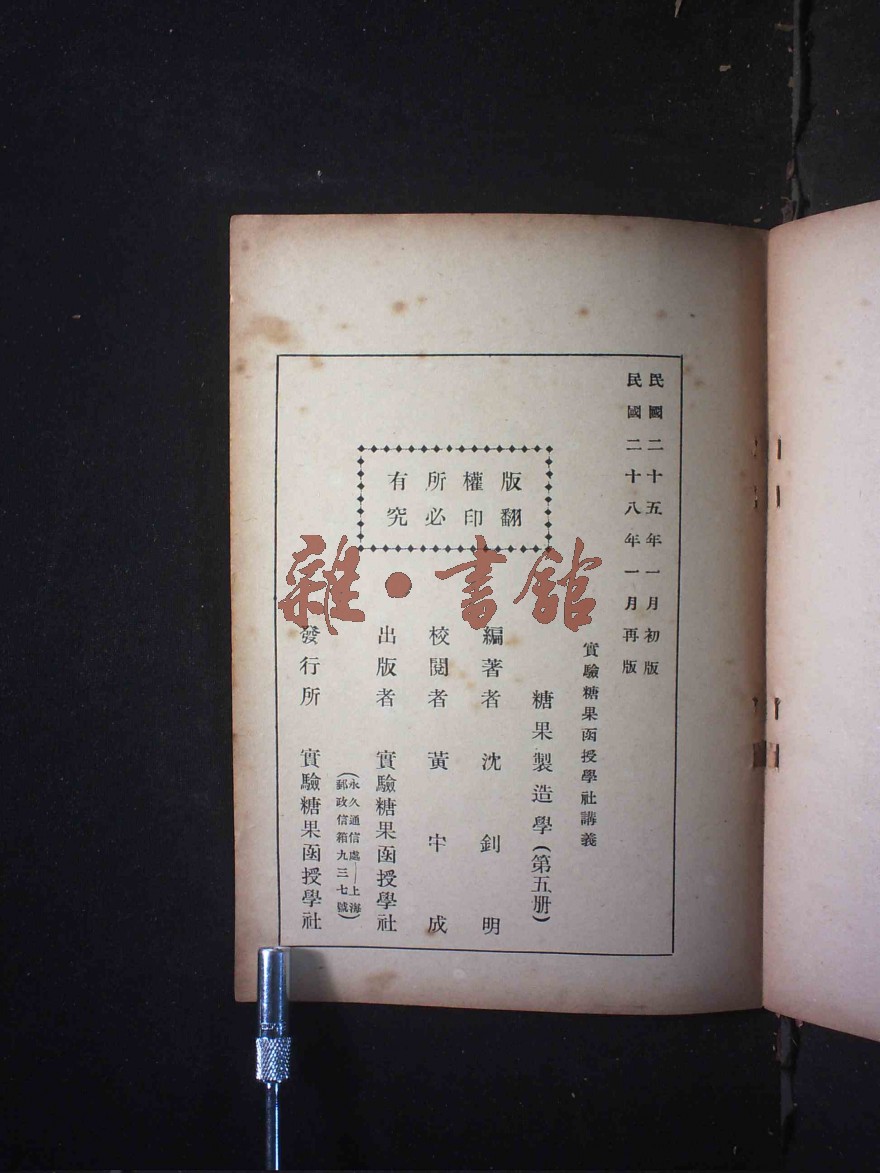 民國二十五年一月初版
民國二十八年一月再版
實驗糖果函授學社講義
糖果製造學(第五册)
版權所有
翻印必究
編著者 沈釗明
校閱者 黃宇成
出版者 實驗糖果函授學社
(永久通信處——上海
郵政信箱九三七號)
發行所 實驗糖果函授學社
雜·書館